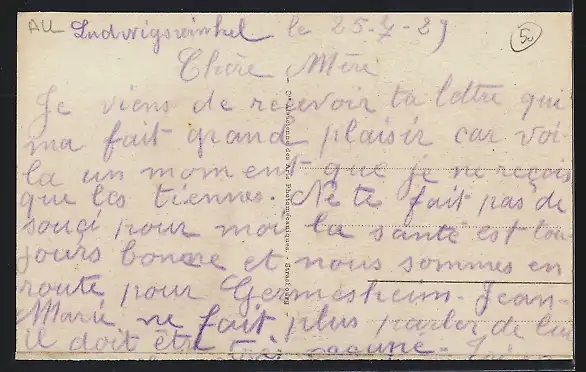 All Ludwigswinkel le 25-7-29
50
Chère Mère
Je viens de recevoir ta lettre qui
ma fait grand plaisir car voi-
la un moment que je ne reçois
que les tiennes. Ne te fait pas de
souçi pour moi la santé est tou
jours bonne et nous sommes en
route pour Germesheim. Jean-
Marie ne fait plus parler de lui
il doit être très
Cie Alsacienne des Arts Photomécaniques - Strasbourg